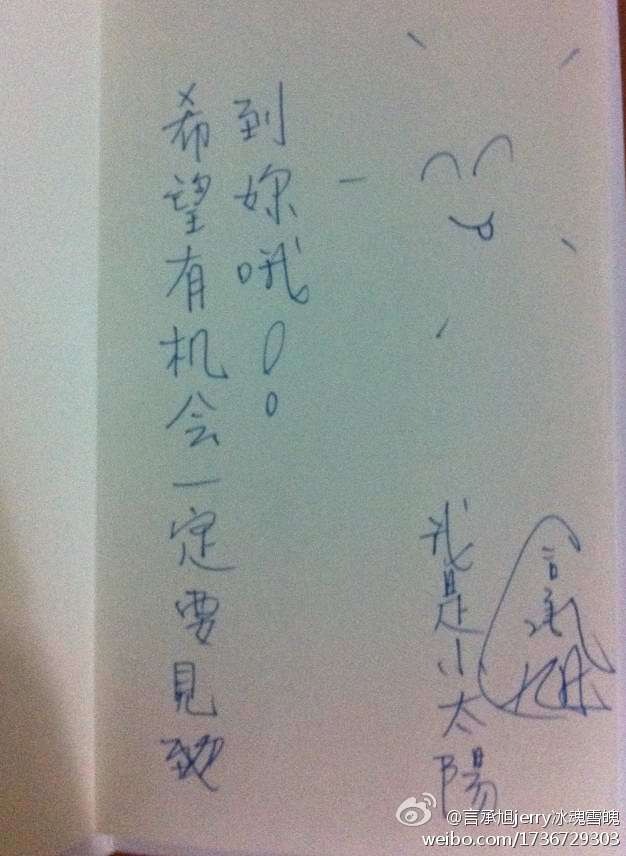 希望有机会一定要見
到妳哦！
我是小太陽
言承旭
@言承旭jerry冰魂雪魄
weibo.com/1736729303